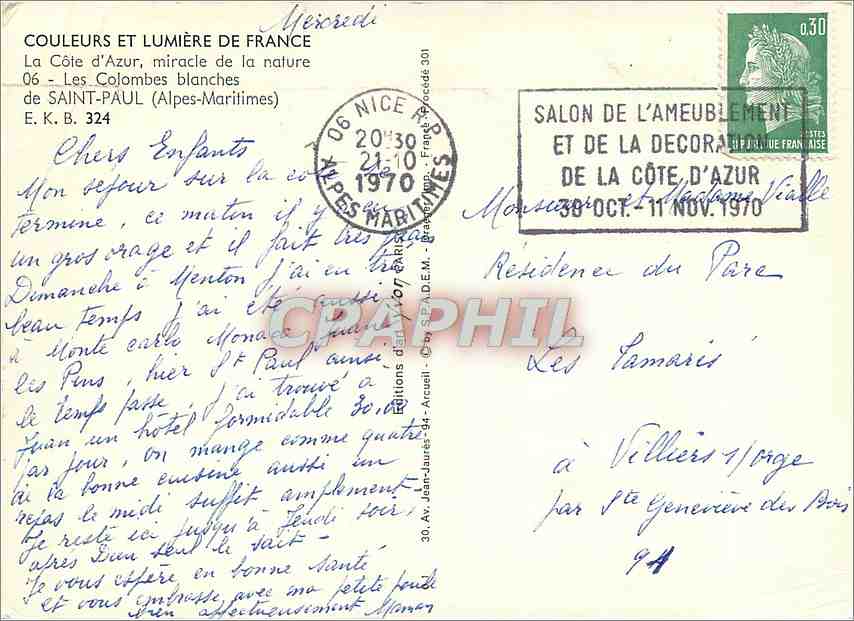 Mercredi
COULEURS ET LUMIÈRE DE FRANCE
La Côte d'Azur, miracle de la nature
06 - Les Colombes blanches
de SAINT-PAUL (Alpes-Maritimes)
E. K. B. 324
Chers Enfants
Mon sejour sur la cote se
termine, ce matin il y a eu
un gros orage et il fait très
Dimanche à Menton j'ai eu très
beau temps j'ai été aussi
à Monte Carlo Monaco, Juan
les Pins, hier St Paul ainsi
le temps passe, j'ai trouvé à
Juan un hôtel formidable 30,00
par jour, on mange comme quatre
de la bonne cuisine aussi un
repas le midi suffit amplement
Je reste ici jusqu'à Jeudi soir
après Dieu seul le sait -
Je vous espère en bonne santé
et vous embrasse avec ma petite
bien affectueusement Maman
30, Av. Jean-Jaurès - 94 - Arcueil - © by S.P.A.D.E.M. - Draeger, Imp. - France - Procédé 301
Editions d'art Yvon PARIS
06 NICE R.P.
20H30
21-10
1970
ALPES MARITIMES
SALON DE L'AMEUBLEMENT
ET DE LA DECORATION
DE LA CÔTE D'AZUR
30 OCT.-11 NOV. 1970
0,30
POSTES
REPUBLIQUE FRANCAISE
Monsieur et Madame Vialle
Résidence du Parc
Les Tamaris
à Villiers s/orge
par Ste Geneviève des Bois
91
CPAPHIL